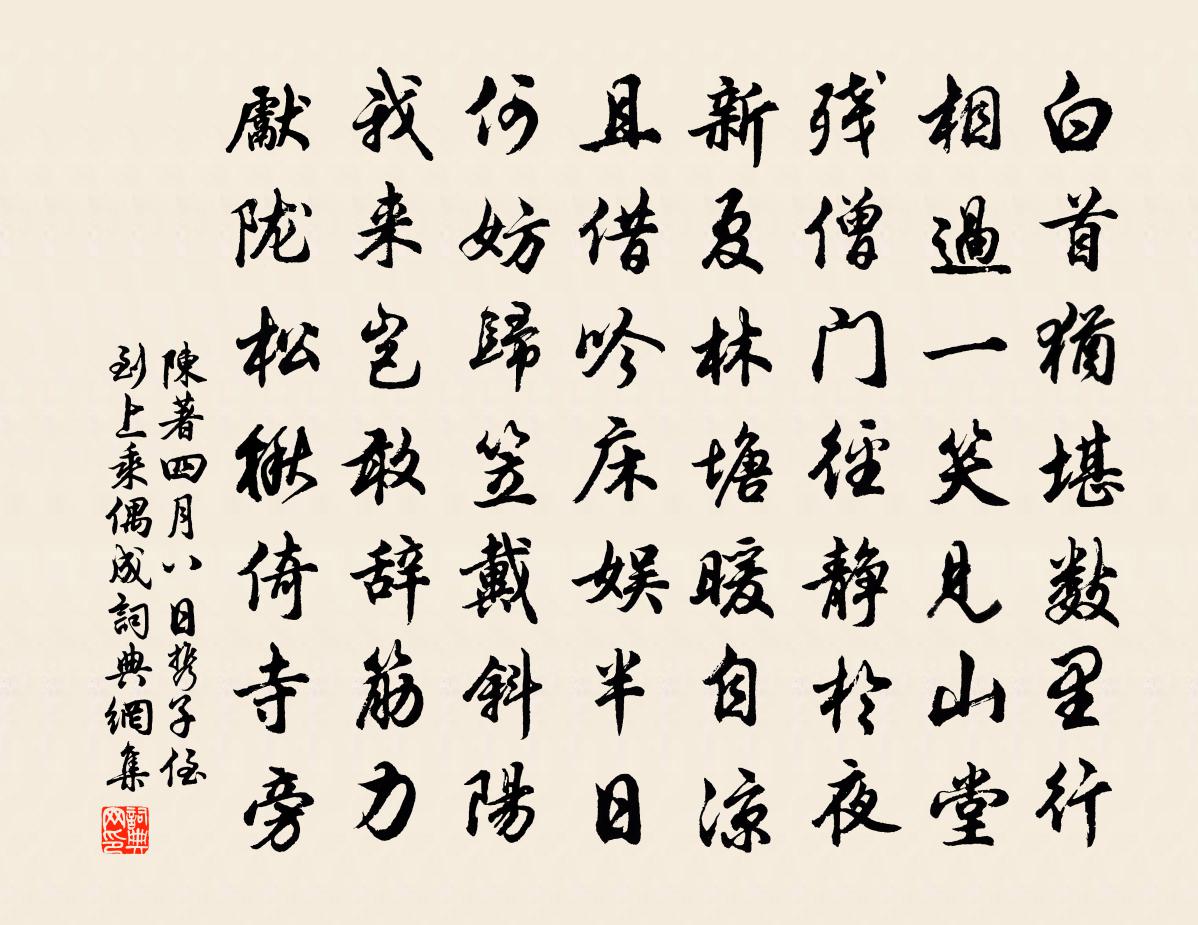 白首猶堪數里行
相過一笑见山堂
残僧门徑静於夜
新夏林塘暖自涼
且借吟床娱半日
何妨歸笠戴斜陽
我来岂敢辞筋力
獻陇松楸倚寺旁
陳著四月八日携子侄
到上乘偶成詞典網集
詞典网印